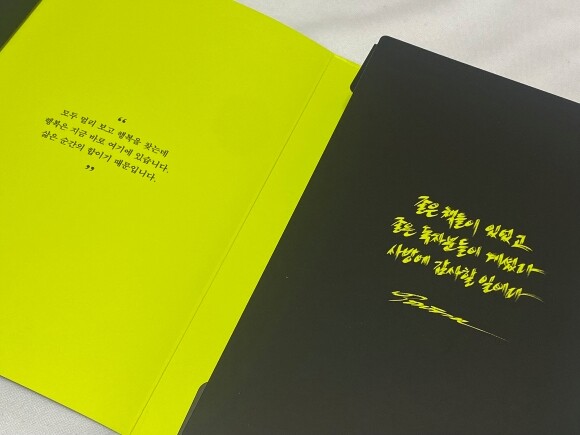 “
모두 멀리 보고 행복을 찾는데
행복은 지금 바로 여기에 있습니다.
삶은 순간의 합이기 때문입니다.
”
좋은 책들이 있었고
좋은 독자분들이 계셨다
사방에 감사할 일이다